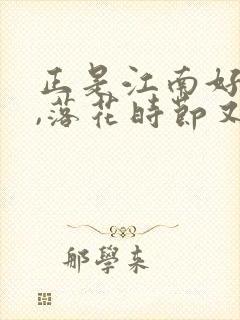 正是江南好
,落花時節又
那學來